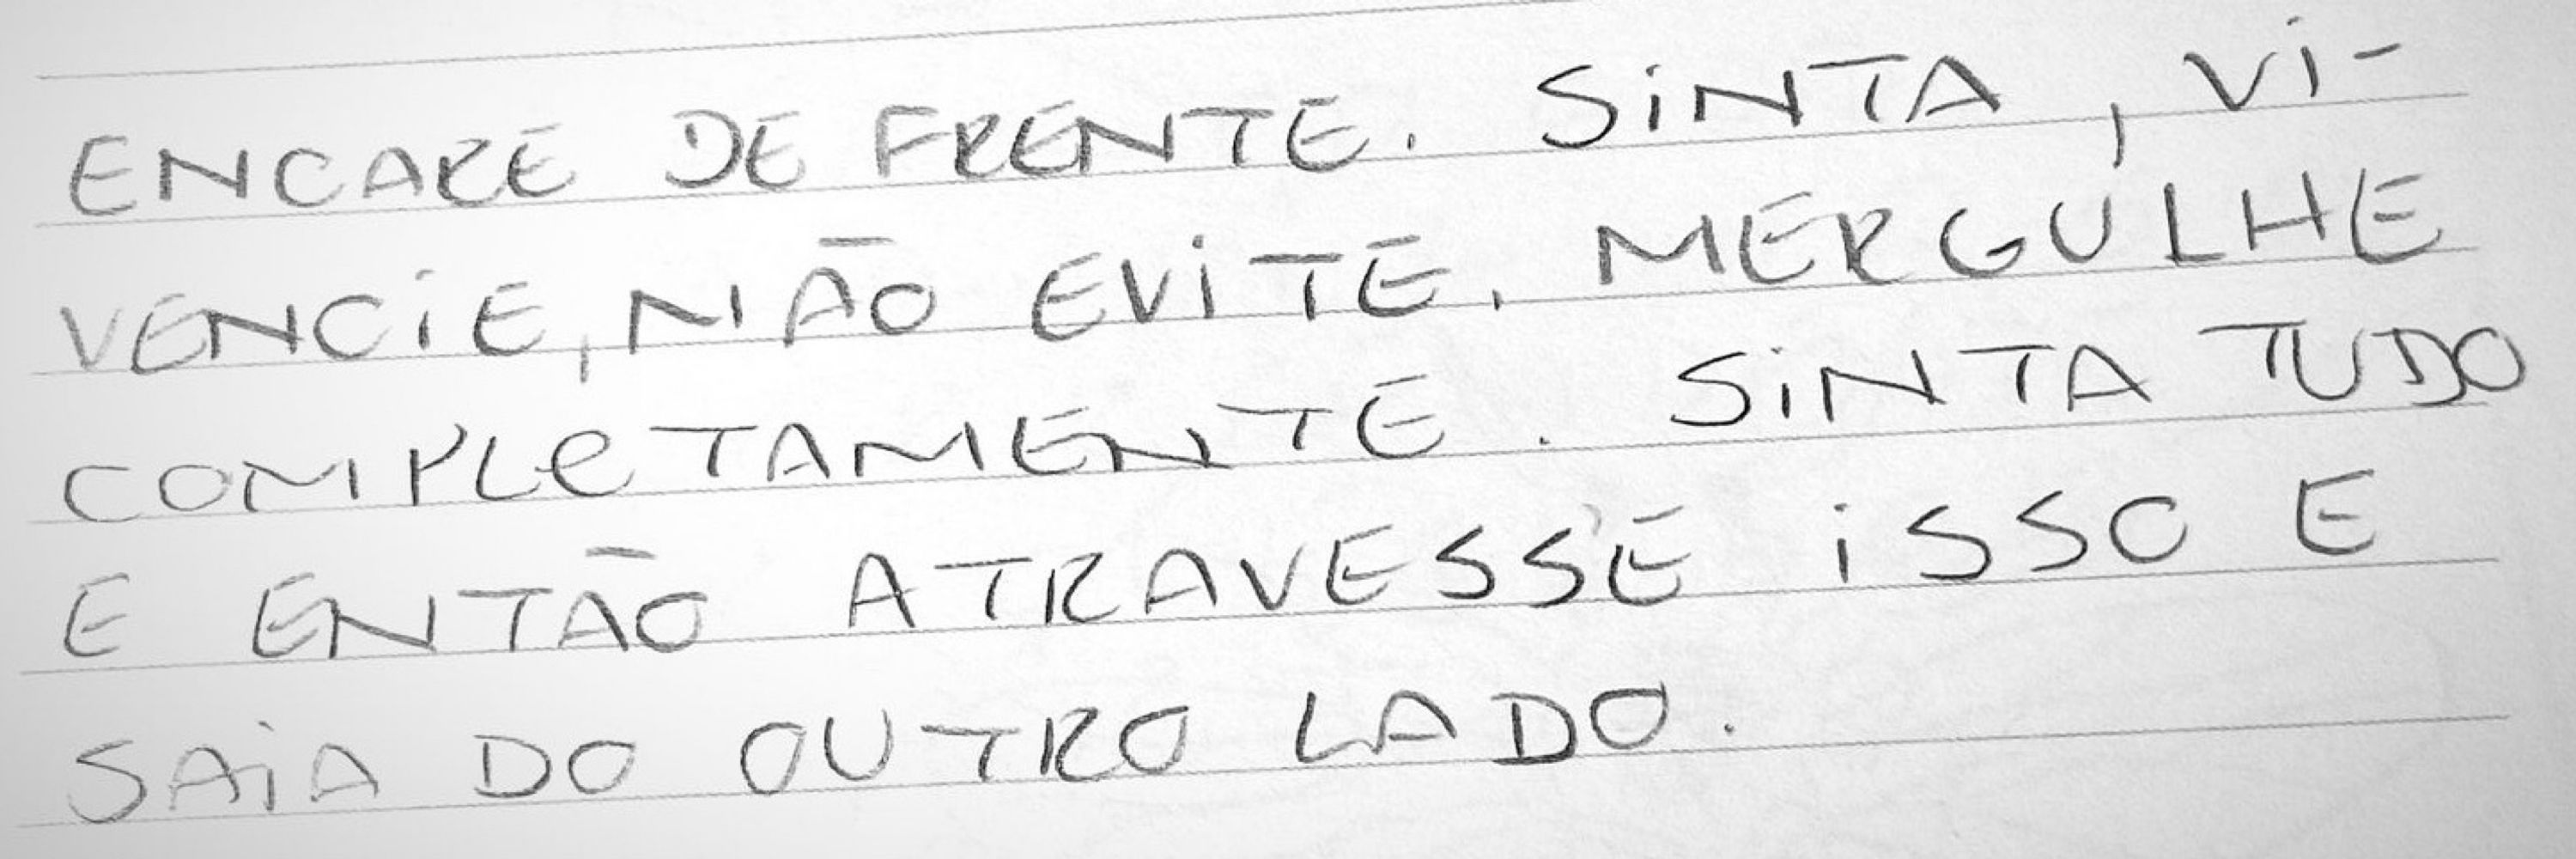 ENCARE DE FRENTE. SINTA, VI-
VENCIE, NÃO EVITE. MERGULHE
COMPLETAMENTE. SINTA TUDO
E ENTÃO ATRAVESSE ISSO E
SAIA DO OUTRO LADO.